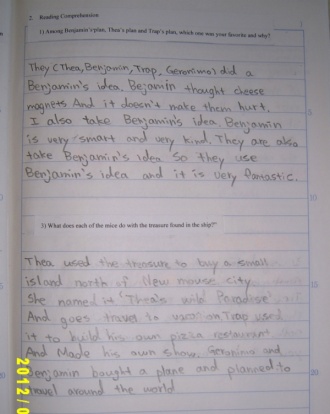 2. Reading Comprehension
1) Among Benjamin's plan, Thea's plan and Trap's plan, which one was your favorite and why?
They (Thea, Benjamin, Trap, Geronimo) did a
Benjamin's idea. Bejamin thought cheese
magnets And it doesn't make them hurt.
I also take Benjamin's idea. Benjamin
is very smart and very kind. They are also
take Benjamin's idea So they use
Benjamin's idea and it is very fantastic.
10
3) What does each of the mice do with the treasure found in the ship?
Thea used the treasure to buy a small
island north of New mouse city.
She named it 'Thea's wild Paradise'
And goes travel to Trap used
it to build his own pizza restaurant
And Made his own show. Geronimo and
Benjamin baught a plane and planned to
travel around the world
20
2012/0